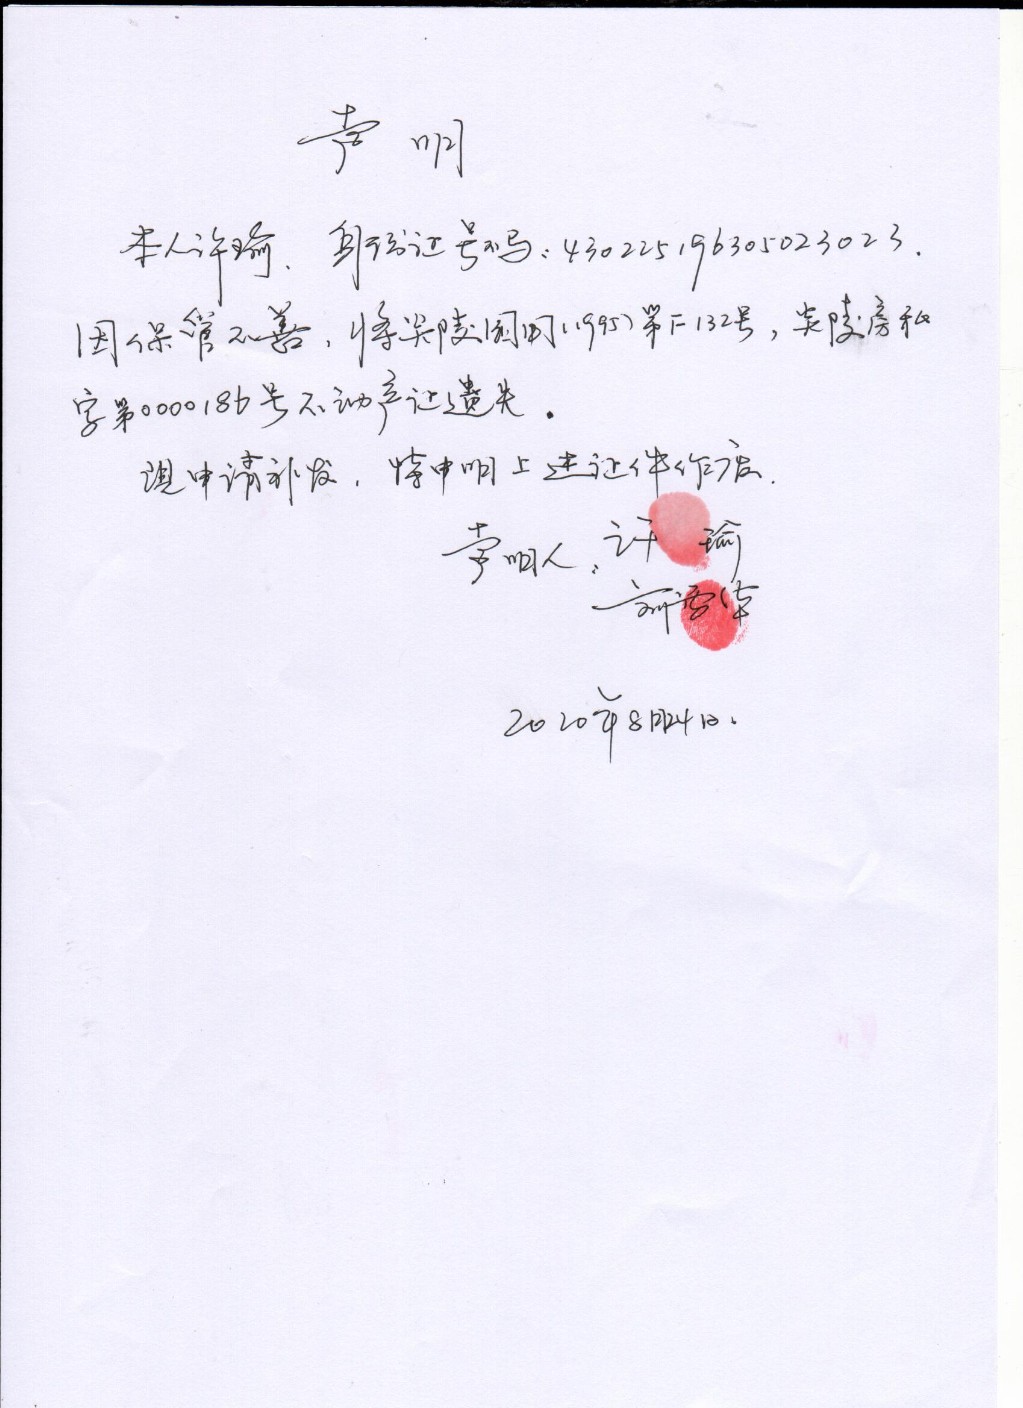 声明
本人许瑜、身份证号码:430225196305023023.
因保管不善,将炎陵国用(1995)第F132号,炎陵房私
字第0000186号不动产证遗失.
现申请补发,特申明上述证件作废.
声明人:许瑜
2020年8月24日.